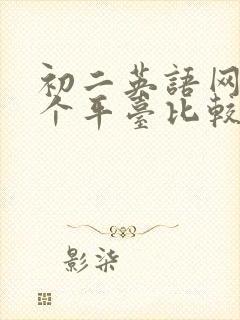 初二英語网
个平臺比較
影柒